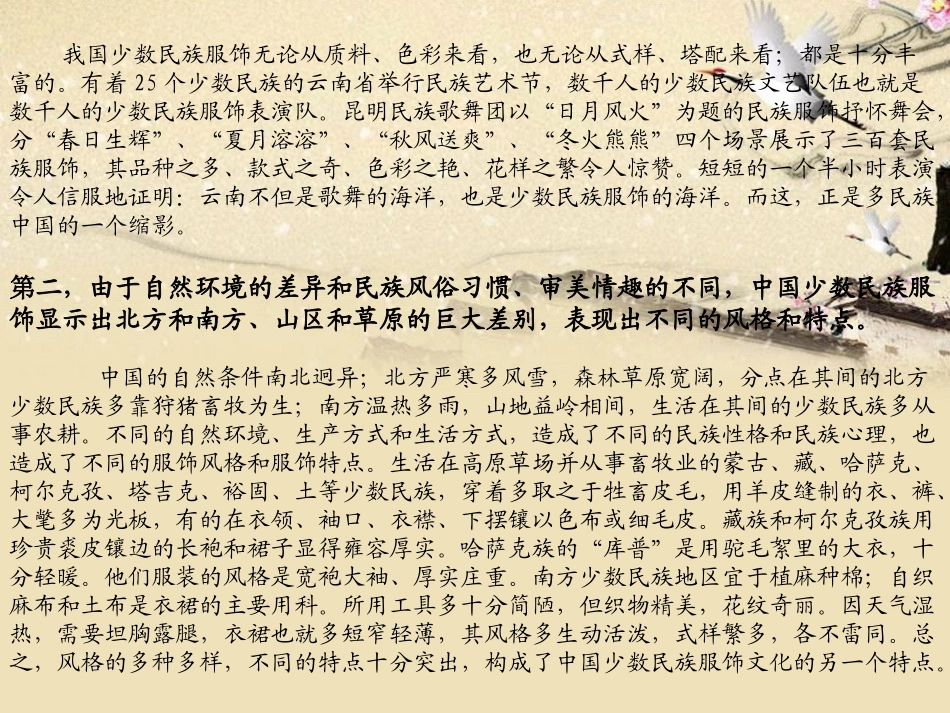 我国少数民族服饰无论从质料、色彩来看，也无论从式样、塔配来看；都是十分丰
富的。有着 25 个少数民族的云南省举行民族艺术节，数千人的少数民族文艺队伍也就是
数千人的少数民族服饰表演队。昆明民族歌舞团以“日月风火”为题的民族服饰抒怀舞会，
分“春日生辉”、“夏月溶溶”、“秋风送爽”、“冬火熊熊”四个场景展示了三百套民
族服饰，其品种之多、款式之奇、色彩之艳、花样之繁令人惊赞。短短的一个半小时表演
令人信服地证明：云南不但是歌舞的海洋，也是少数民族服饰的海洋。而这，正是多民族
中国的一个缩影。
第二，由于自然环境的差异和民族风俗习惯、审美情趣的不同，中国少数民族服
饰显示出北方和南方、山区和草原的巨大差别，表现出不同的风格和特点。
中国的自然条件南北迥异；北方严寒多风雪，森林草原宽阔，分点在其间的北方
少数民族多靠狩猪畜牧为生；南方温热多雨，山地益岭相间，生活在其间的少数民族多从
事农耕。不同的自然环境、生产方式和生活方式，造成了不同的民族性格和民族心理，也
造成了不同的服饰风格和服饰特点。生活在高原草场并从事畜牧业的蒙古、藏、哈萨克、
柯尔克孜、塔吉克、裕固、土等少数民族，穿着多取之于牲畜皮毛，用羊皮缝制的衣、裤、
大氅多为光板，有的在衣领、袖口、衣襟、下摆镶以色布或细毛皮。藏族和柯尔克孜族用
珍贵裘皮镶边的长袍和裙子显得雍容厚实。哈萨克族的“库普”是用驼毛絮里的大衣，十
分轻暖。他们服装的风格是宽袍大袖、厚实庄重。南方少数民族地区宜于植麻种棉；自织
麻布和土布是衣裙的主要用科。所用工具多十分简陋，但织物精美，花纹奇丽。因天气湿
热，需要坦胸露腿，衣裙也就多短窄轻薄，其风格多生动活泼，式样繁多，各不雷同。总
之，风格的多种多样，不同的特点十分突出，构成了中国少数民族服饰文化的另一个特点。